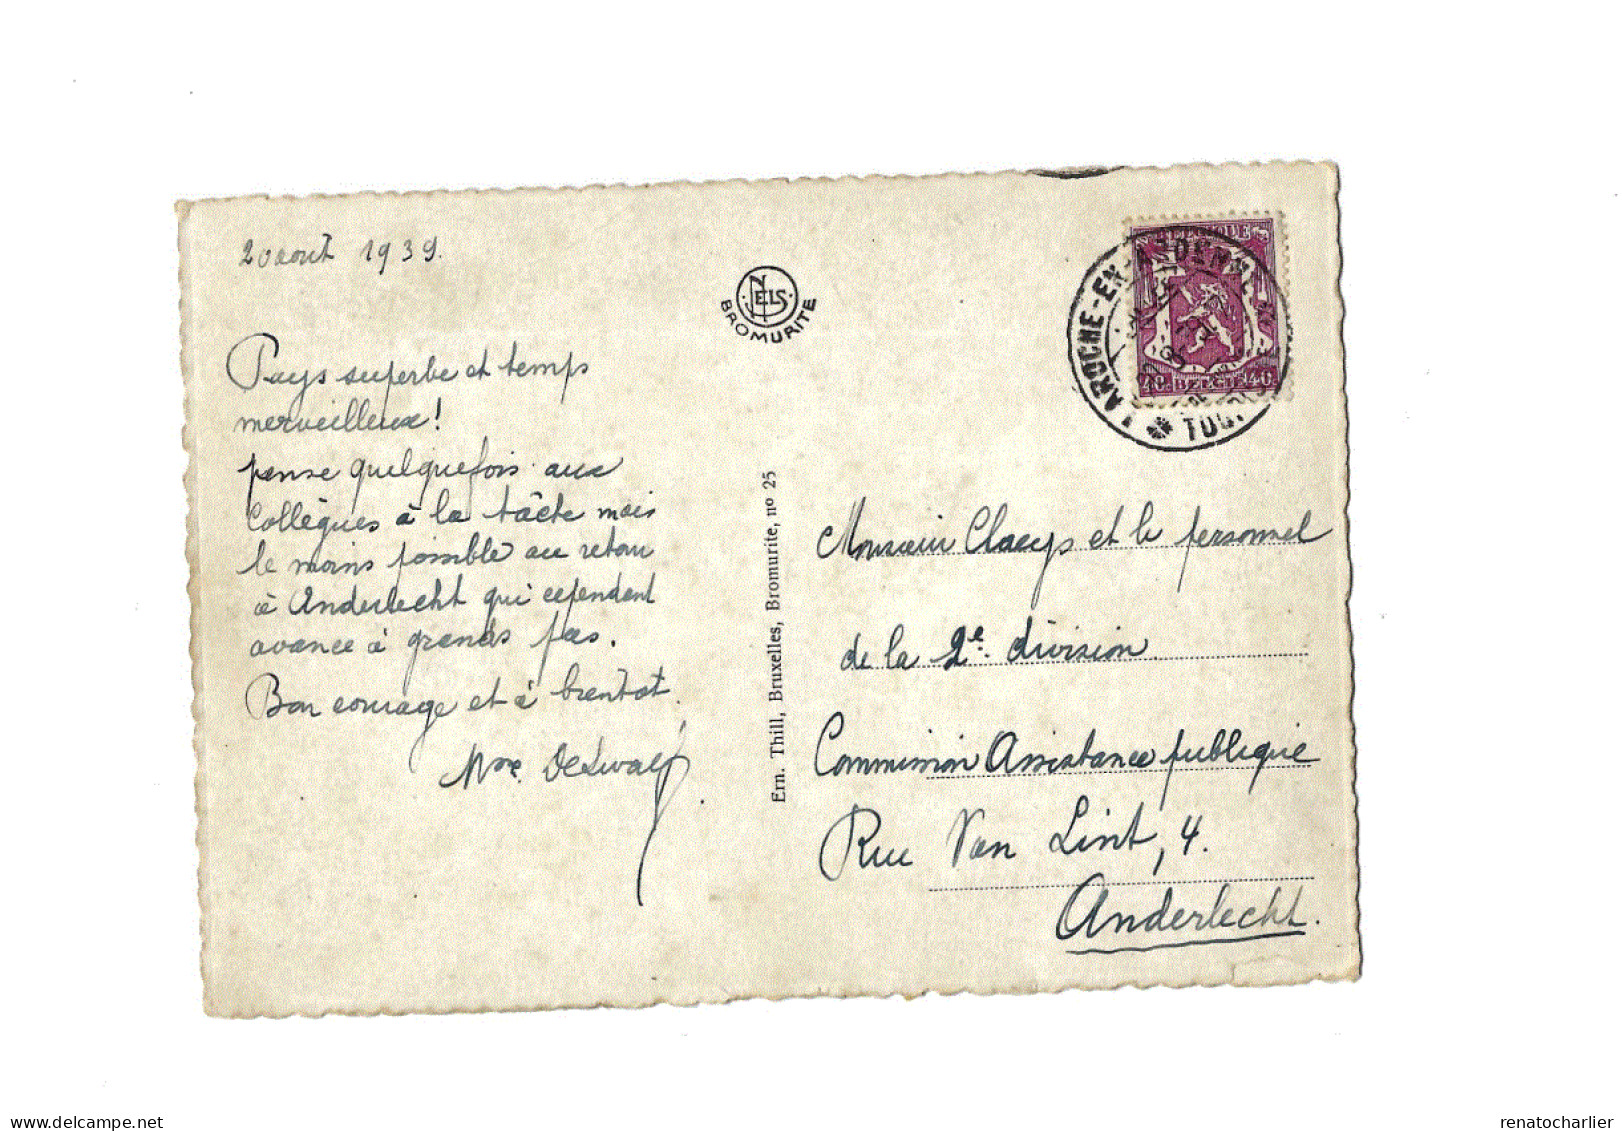 20 aout 1939.
Pays superbe et temps
merveilleux!
pense quelquefois aux
Collègues à la tâche mais
le moins possible au retour
à Anderlecht qui cependant
avance à grands pas.
Bon courage et à bientot.
NELS
BROMURITE
Ern. Thill, Bruxelles, Bromurite, nº 25
LAROCHE-EN-ARDENNE
BELGIQUE
40c BELGIE 40c
Monsieur Claeys et le personnel
de la 2e. division
Commission Assistance publique
Rue Van Lint, 4.
Anderlecht.
renatocharlier